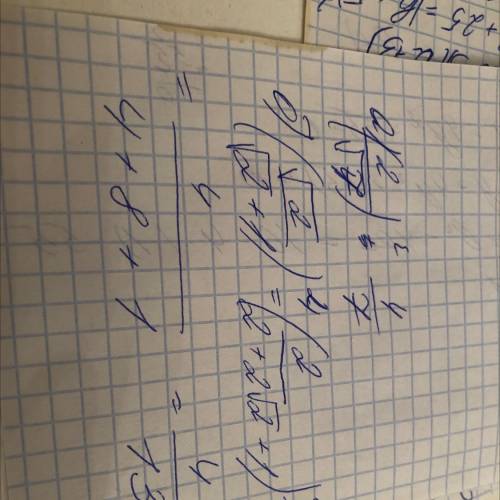 а) (2/√7)² = 4/7
б) (√2/(√2+1))⁴ = (2/(2+2√2+1))
= 4/(4+8+1) = 4/13